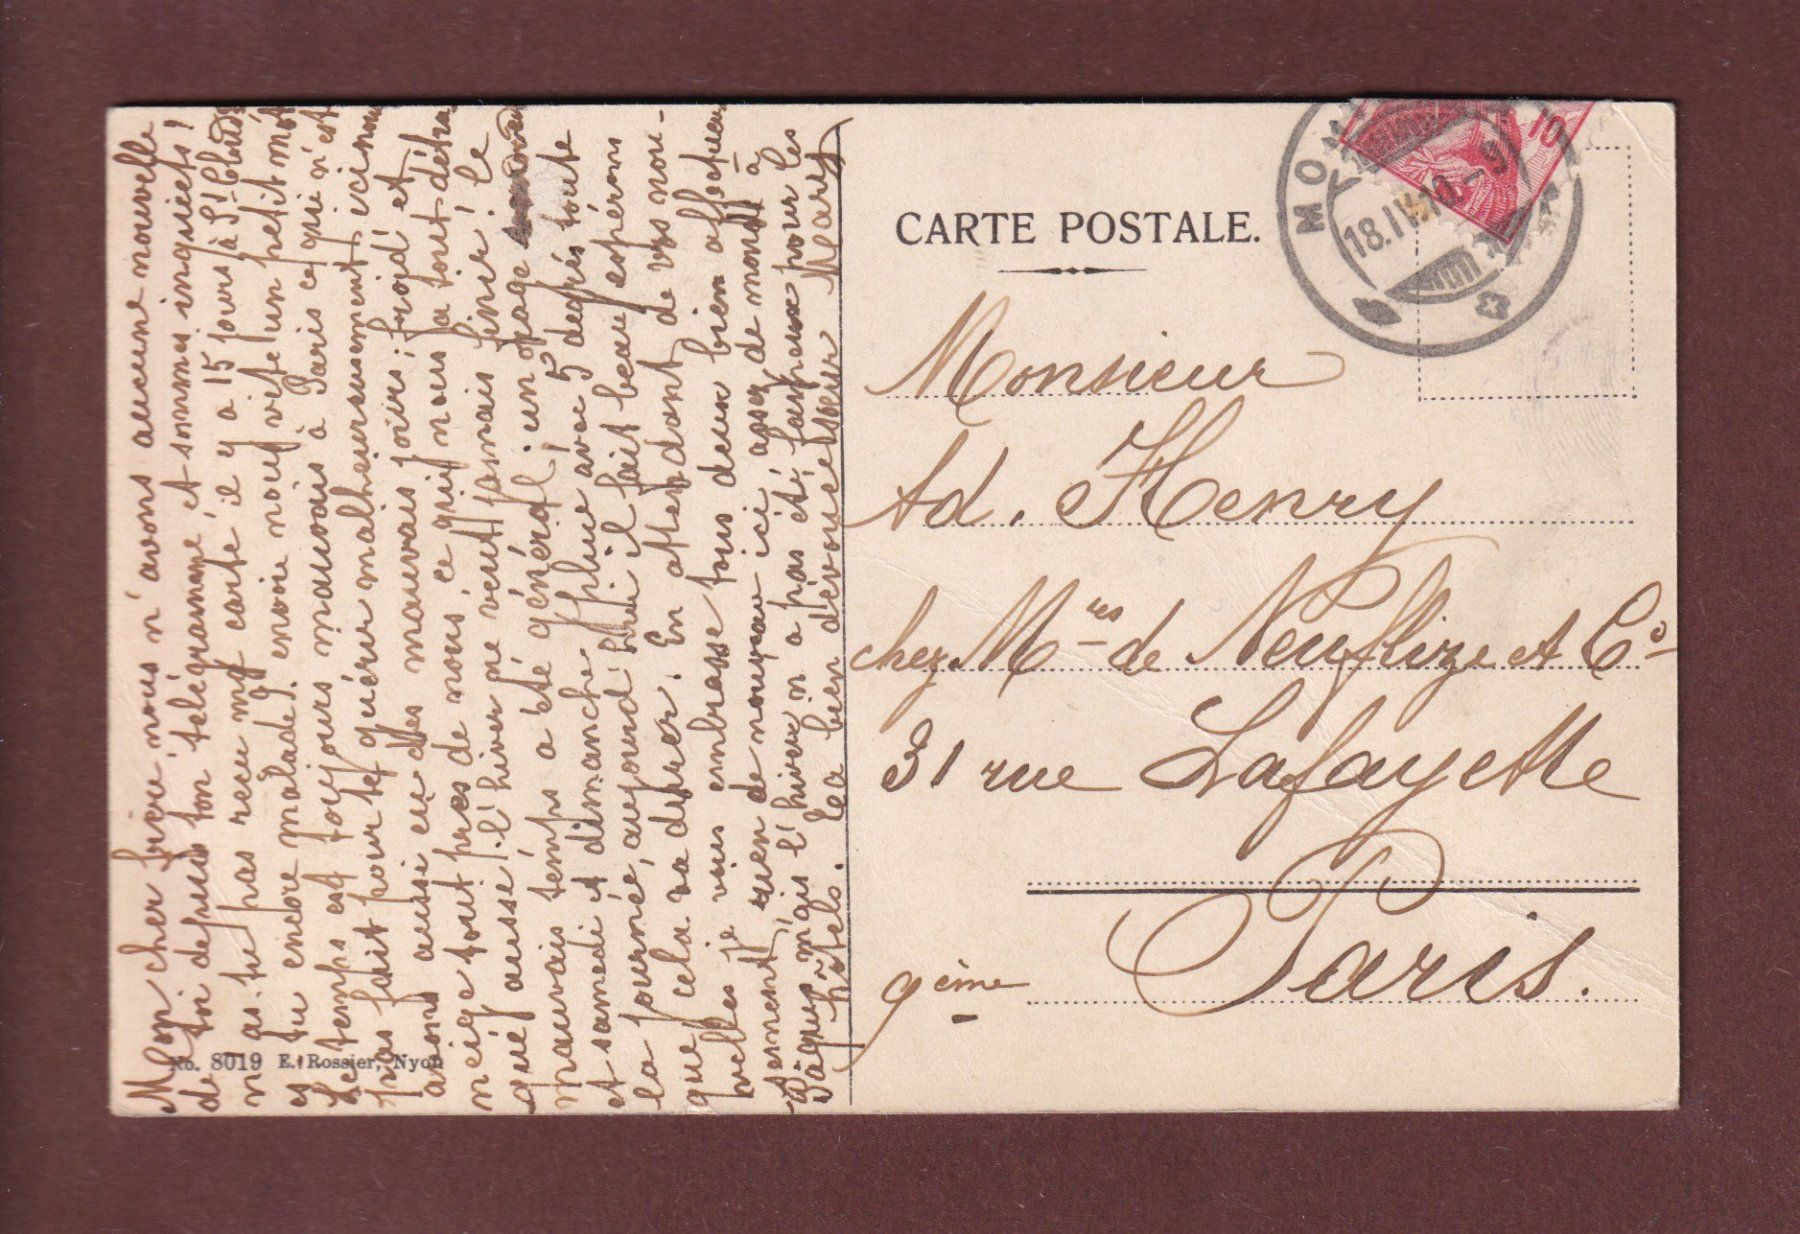 Mon cher fieu nous n'avons aucune nouvelle
de toi depuis ton télégramme et sommes inquiets!
n'as-tu pas reçu ma carte il y a 15 jours à St Cloud
es tu encore malade? envoie nous vite un petit mot
Le temps est toujours mauvais à Paris ce qui n'est
pas fait pour te guérir malheureusement, ici nous
avons aussi eu des mauvais jours; froid et
neige tout près de nous ce qui nous a tout détra
qué aussi! l'hiver ne veut jamais finir! le
mauvais temps a été général; un orage
et samedi et dimanche pluie avec 5 degrés toute
la journée, aujourd'hui il fait beau espérons
que cela va durer. En attendant de vos nou-
velles je vous embrasse tous deux bien affectueu
sement, rien de nouveau ici assez de monde à
Pâques mais l'hiver n'a pas été fameux pour les
hôtels. Ta bien dévouée sœur Mary
No. 8019 E. Rossier, Nyon
CARTE POSTALE.
MO
18.IV.10.-9
10
Monsieur
Ad. Henry
chez Mrs de Neuflize et Co
31 rue Lafayette
Paris.
9ème